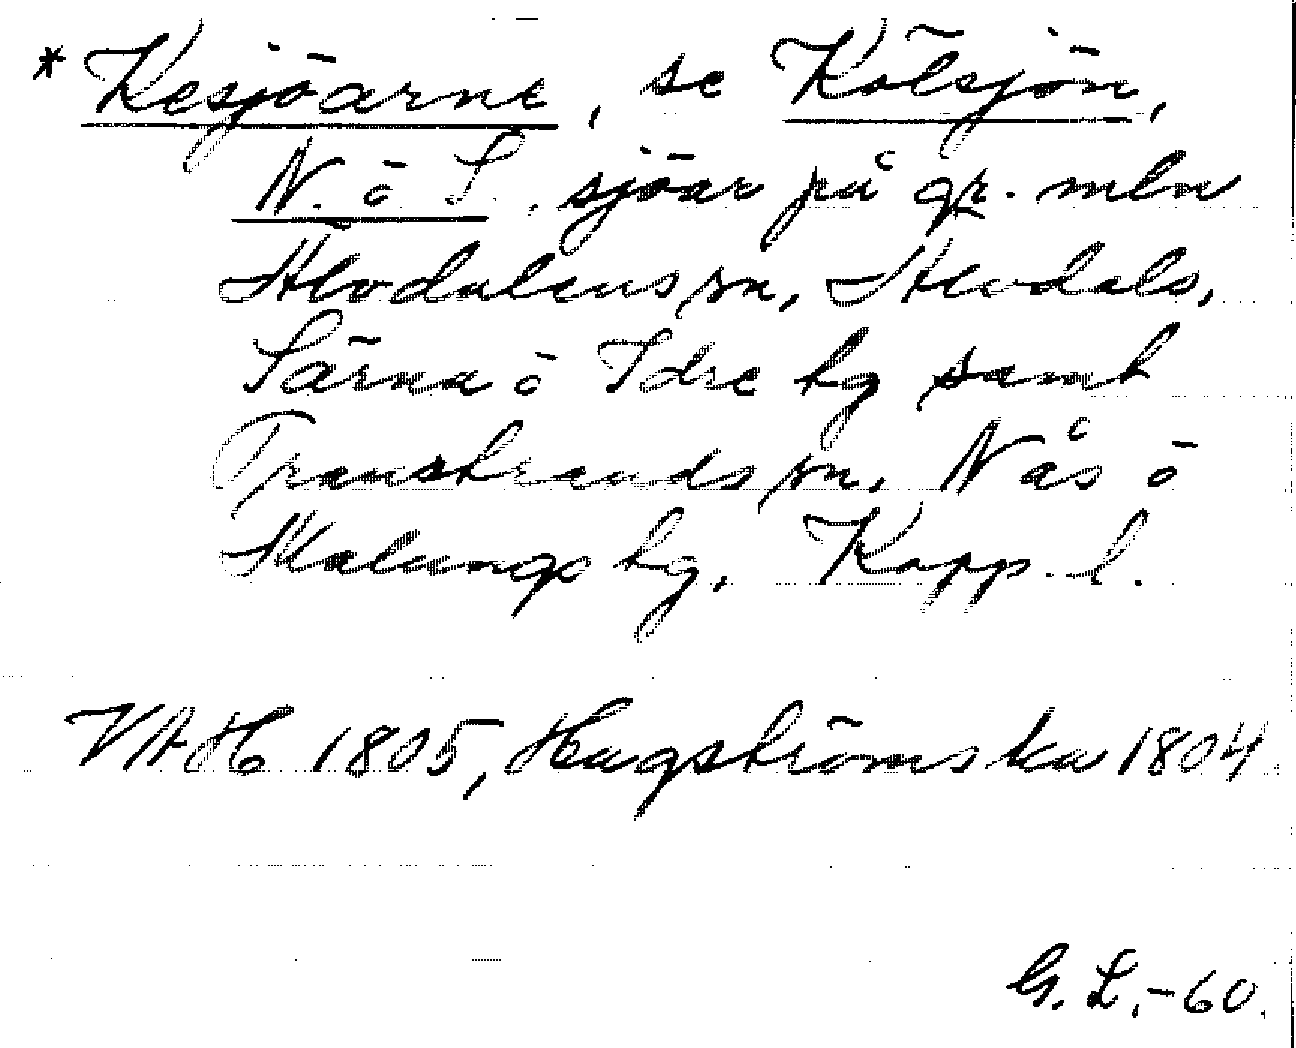 * Kesjöarne, se Kölsjön,
N. o S. sjöar på gr. mln
Älvdalens sn, Älvdals,
Särna o Idre tg samt
Transtrands sn, Nås o
Malungs tg, Kopp. l.
VAH 1805, Hagströmska 1804
G. L. -60.